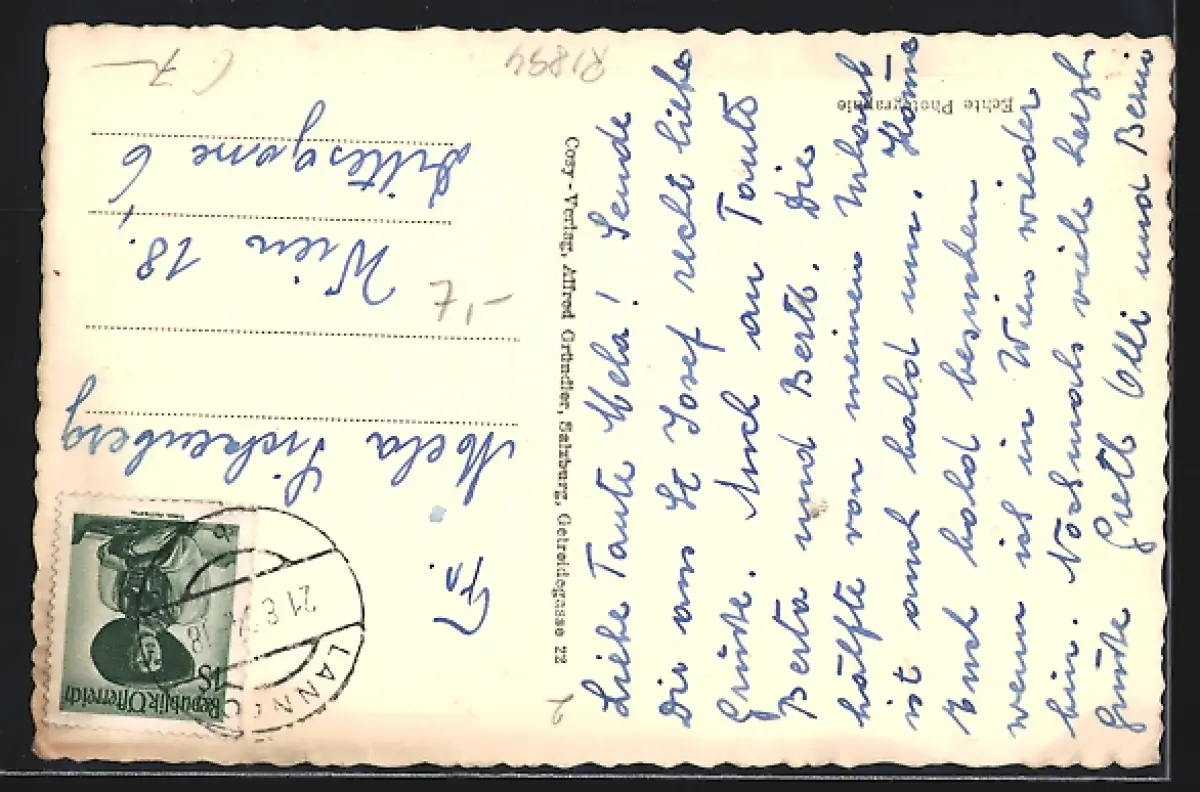 Liebe Tante Mela! Sende
Dir aus St Josef recht liebe
Grüße. Auch an Tante
Berta und Bertl. Die
hälfte von meinem Urlaub
ist auch bald um. Komme
Euch bald besuchen
wenn ich in Wien wieder
bin. Nochmals viele herzl.
Grüße Gretl Olli und Berni
Echte Photographie
R1894
Cosy-Verlag, Alfred Gründler, Salzburg, Getreidegasse 22
Fr.
Mela
Wien 18.,
6
Republik Österreich
1S
LANN
21.8.
18